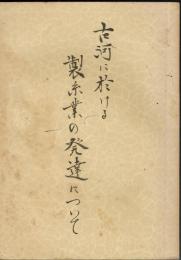 古河に於ける
製糸業の発達について